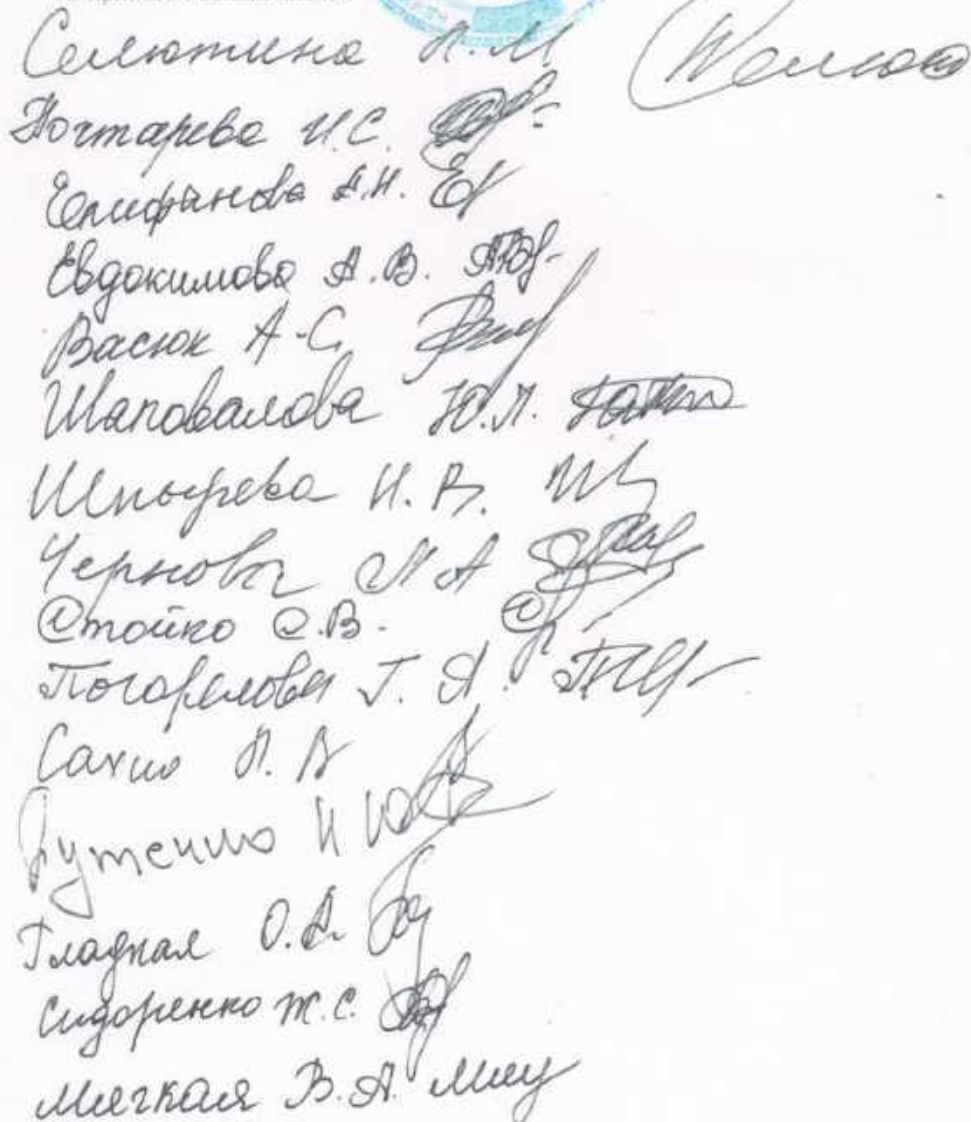 Селютина Н.М
Почтарева И.С.
Епифанова А.Н.
Евдокимова А.В.
Васюк А.С.
Шаповалова Ю.Л.
Шпырева И.В.
Чернова М А
Стойко С.В.
Погорелова Т.Я.
Сахно Л.В
И Ю
Гладкая О.А.
Сидоренко Ж.С.
Мягкая В.А.